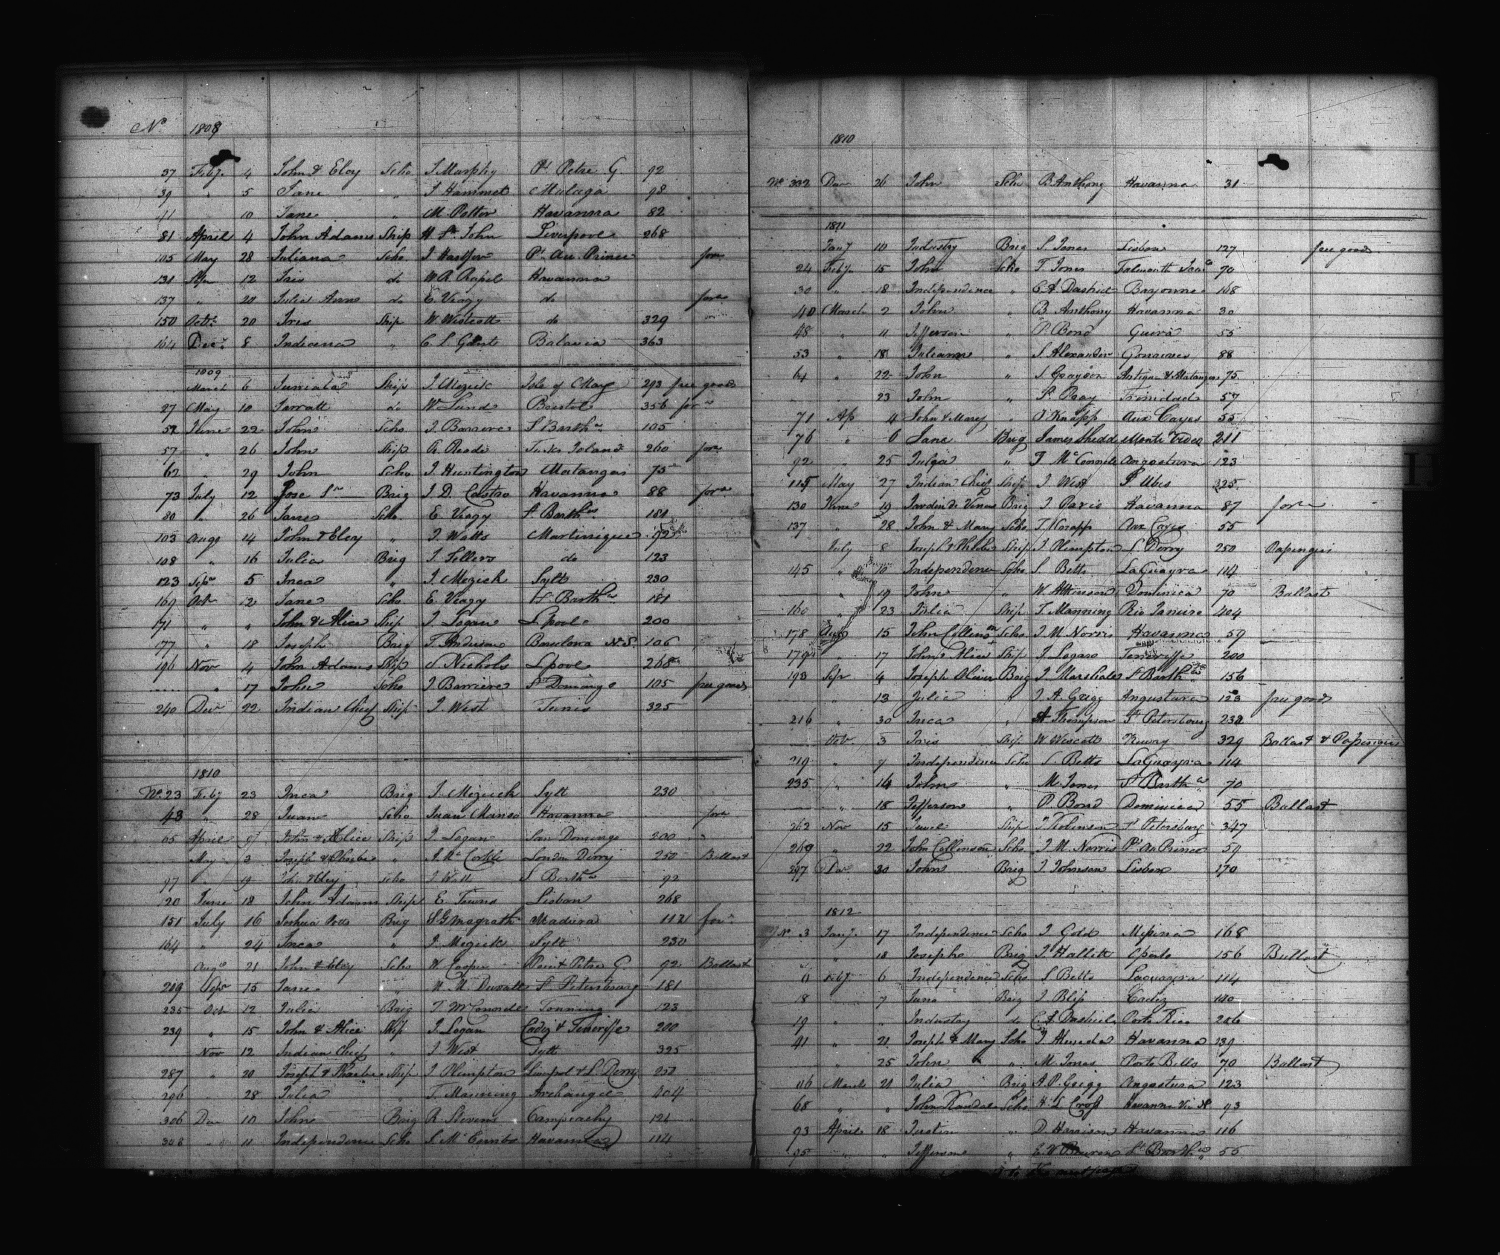 No 1808
37 Feby 4 John & Eloy Scho J Murphy Pt Petre G 92
39 " 5 Jane " J Hammet Malaga 98
41 " 10 Jane " M Potter Havanna 82
81 April 4 John Adams Ship H St John Liverpool 268
105 May 28 Juliana Scho J Pt Au Prince forn
131 12 Iris do W A Havanna
137 " 20 Julia Anna do E Veacy do forn
150 Octr 20 Iris Ship W Westcott do 329 "
164 Decr 8 Indiana " C S Batavia 363
1809
March 6 Juniata Ship J Mezick Isle of May 293 free goods
27 May 10 Jarratt do W Lund Bristol 356 forn
52 June 22 John Scho J Barriere St Barths 105
57 " 26 John Ship A Reade Turks Island 260 forn
62 " 29 John Scho J Huntington Matanzas 75
73 July 12 Jose Brig J D Castro Havanna 88 forn
80 " 26 Jane Scho E Veacy St Barths 181
103 Augt 14 John & Eloy " J Watts Martinique 92
108 " 16 Julia Brig J Sellers do 123
123 Sepr 5 Inca " J Mezick Sylt 230
169 Octr 2 Jane Scho E Veacy St Barths 181
171 " " John & Alice Ship J Logan Lpool 200
177 " 18 Joseph Brig T Anderson Barcelona N S 106
196 Nov 4 John Adams Ship S Nichols Lpool 268
" 17 John Scho J Barriere St Domingo 105 free goods
240 Decr 22 Indian Chief Ship J West Tunis 325
1810
No 23 Feby 23 Inca Brig J Mezick Sylt 230
43 " 28 Juan Scho Juan Havanna forn
95 April 9 John & Alice Ship J Logan San Domingo 200
May 3 Joseph & Phoebe " A Mc London Derry 250 Ballast
97 " 19 John & Eloy Scho J Watts St Barths 92
120 June 18 John Adams Ship E Towns Lisbon 268
151 July 16 Joshua Potts Brig S G Magrath Madeira 112 forn
164 " 24 Inca " J Mezick Sylt 230
Augt 21 John & Eloy Scho W Cooper Point Petre G 92 Ballast
219 Sepr 15 Jane M Duvall St Petersburg 181
235 Oct 12 Julia Brig T McConnell Tonning 123
239 " 15 John & Alice Ship J Logan Cadiz & Teneriffe 200
Nov 12 Indian Chief " J West Sylt 325
287 " 20 Joseph & Phoebe Ship J Plimpton Liverpool & L Derry 250
296 " 28 Julia " T Manning Archangel 404
306 Decr 10 John Brig A Stevens Campeachy 121
308 " 11 Independence Scho L M Combs Havanna 114
1810
No 332 Decr 26 John Scho B Anthony Havanna 31
1811
Jany 10 Industry Brig S Jones Lisbon 127 free goods
24 Feby 15 John Scho T Jones Falmouth Jaca 70
30 " 18 Independence " C A Dashiel Bayonne 168
40 March 2 John " B Anthony Havanna 30
48 " 11 Jefferson " P Bond Guira 55
53 " 18 Julianna " S Alexander Gonaives 88
64 " 22 John " S Grayson Antigua & Matanzas 75
" 23 John " Pray Trinidad 57
71 Ap 4 John & Mary " J Knapp Aux Cayes 55
76 " 6 Jane Brig James Shedden Monte Video 211
92 " 25 Julia " T McConnell Angostura 123
115 May 27 Indian Chief Ship J West St Ubes 325
130 June 19 Jardin de Venus Brig J Paris Havanna 87 forn
137 " 28 John & Mary Scho J Knapp Aux Cayes 55
July 8 Joseph & Phoebe Ship J Plimpton L Derry 250 Passengers
145 " 16 Independence Scho S Betts LaGuayra 114
" 19 John " W Atkinson Dominica 70 Ballast
160 " 23 Julia Ship T Manning Rio Janeiro 404
178 Aug 15 John Collinson Scho J M Norris Havanna 59
179 " 17 John & Alice Ship J Logan Teneriffe 200
193 Sepr 4 Joseph Oliver Brig J Marshall St Barths 156
" 13 Julia " J A Grigg Angustura 123 free goods
216 " 30 Inca " A Thompson St Petersburg 230
Octr 3 Iris Ship W Wescott Newry 329 Ballast & Passengers
219 " 9 Independence Scho S Betts LaGuayra 114
235 " 14 John " M Jones St Barths 70
" 18 Jefferson " P. Bond Dominica 55 Ballast
262 Nov 15 Ship J St Petersburg 347
269 " 22 John Collinson Scho J M Norris Pt Au Prince 59
297 Decr 30 John Brig J Johnson Lisbon 170
1812
No 3 Jany 17 Independence Scho J Gold Messina 168
" 18 Joseph Brig J Hallett Oporto 156 Ballast
Feby 6 Independence Scho S Betts Laguayra 114
8 7 Jane Brig J Blip Cadiz
19 " Industry do C A Dashiel Porto Rico 206
41 " 21 Joseph & Mary Scho J Almeida Havanna 139
" 25 John " M Jones Porto Bello 70 Ballast
March 21 Julia Brig A P Grigg Angostura 123
68 " " John Randal Scho H L Cross Havanna 93
93 April 18 Justin " D Harrison Havanna 116
95 " " Jefferson " St Barths 55
to the next page